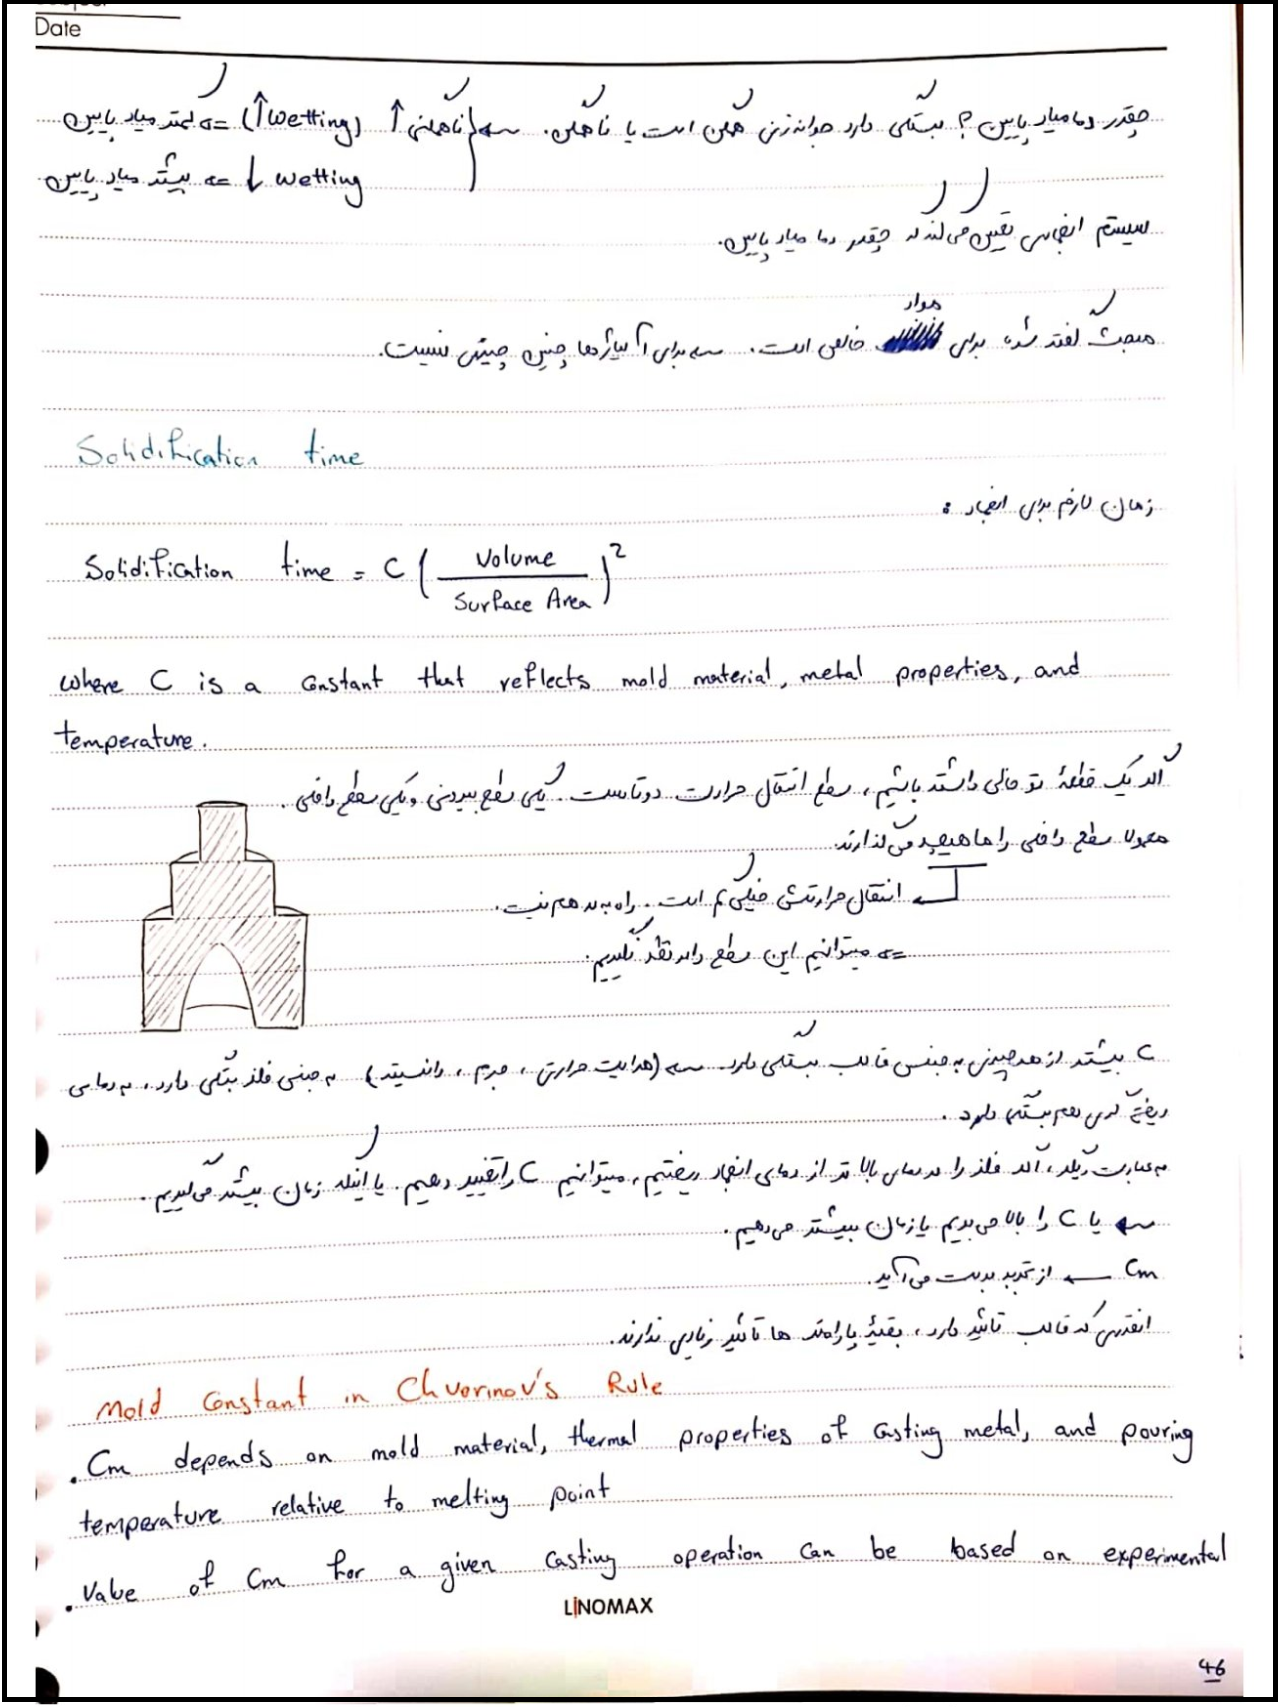 Date
چقدر دما میاد پایین؟ بستگی دارد جوانه‌زنی همگن است یا ناهمگن. ← ناهمگنی ↑ (↑wetting) ⇐ کمتر میاد پایین
wetting ↓ ⇐ بیشتر میاد پایین
سیستم انجمادی تعیین می‌کند که چقدر دما میاد پایین.
مواد
مبحث گفته شده برای خالص است. ← برای آلیاژها چنین چیزی نیست.
Solidification time
زمان لازم برای انجماد :
Solidification time = C ( Volume / Surface Area )²
where C is a constant that reflects mold material, metal properties, and
temperature.
اگر یک قطعهٔ تو خالی داشته باشیم، سطح انتقال حرارت دوتاست. یکی سطح بیرونی و یکی سطح داخلی.
معمولا سطح داخلی را ماهیچه می‌گذارند.
انتقال حرارتش خیلی کم است. راه به در هم نیست.
⇐ میتوانیم این سطح را در نظر نگیریم.
C بیشتر از هر چیزی به جنس قالب بستگی دارد ← (هدایت حرارتی، جرم، دانسیته) به جنس فلز بستگی دارد، به دمای
ریخته‌گری هم بستگی دارد.
به عبارت دیگر، اگر فلز را در دمای بالاتر از دمای انجماد ریختیم، میتوانیم C را تغییر دهیم. یا اینکه زمان بیشتر می‌گیریم.
← یا C را بالا می‌بریم یا زمان بیشتر می‌دهیم.
Cm ← از تجربه بدست می‌آید.
انقدری که قالب تاثیر دارد، بقیهٔ پارامترها تاثیر زیادی ندارند.
Mold Constant in Chvorinov's Rule
. Cm depends on mold material, thermal properties of casting metal, and pouring
temperature relative to melting point
. Value of Cm for a given casting operation can be based on experimental
LINOMAX
46